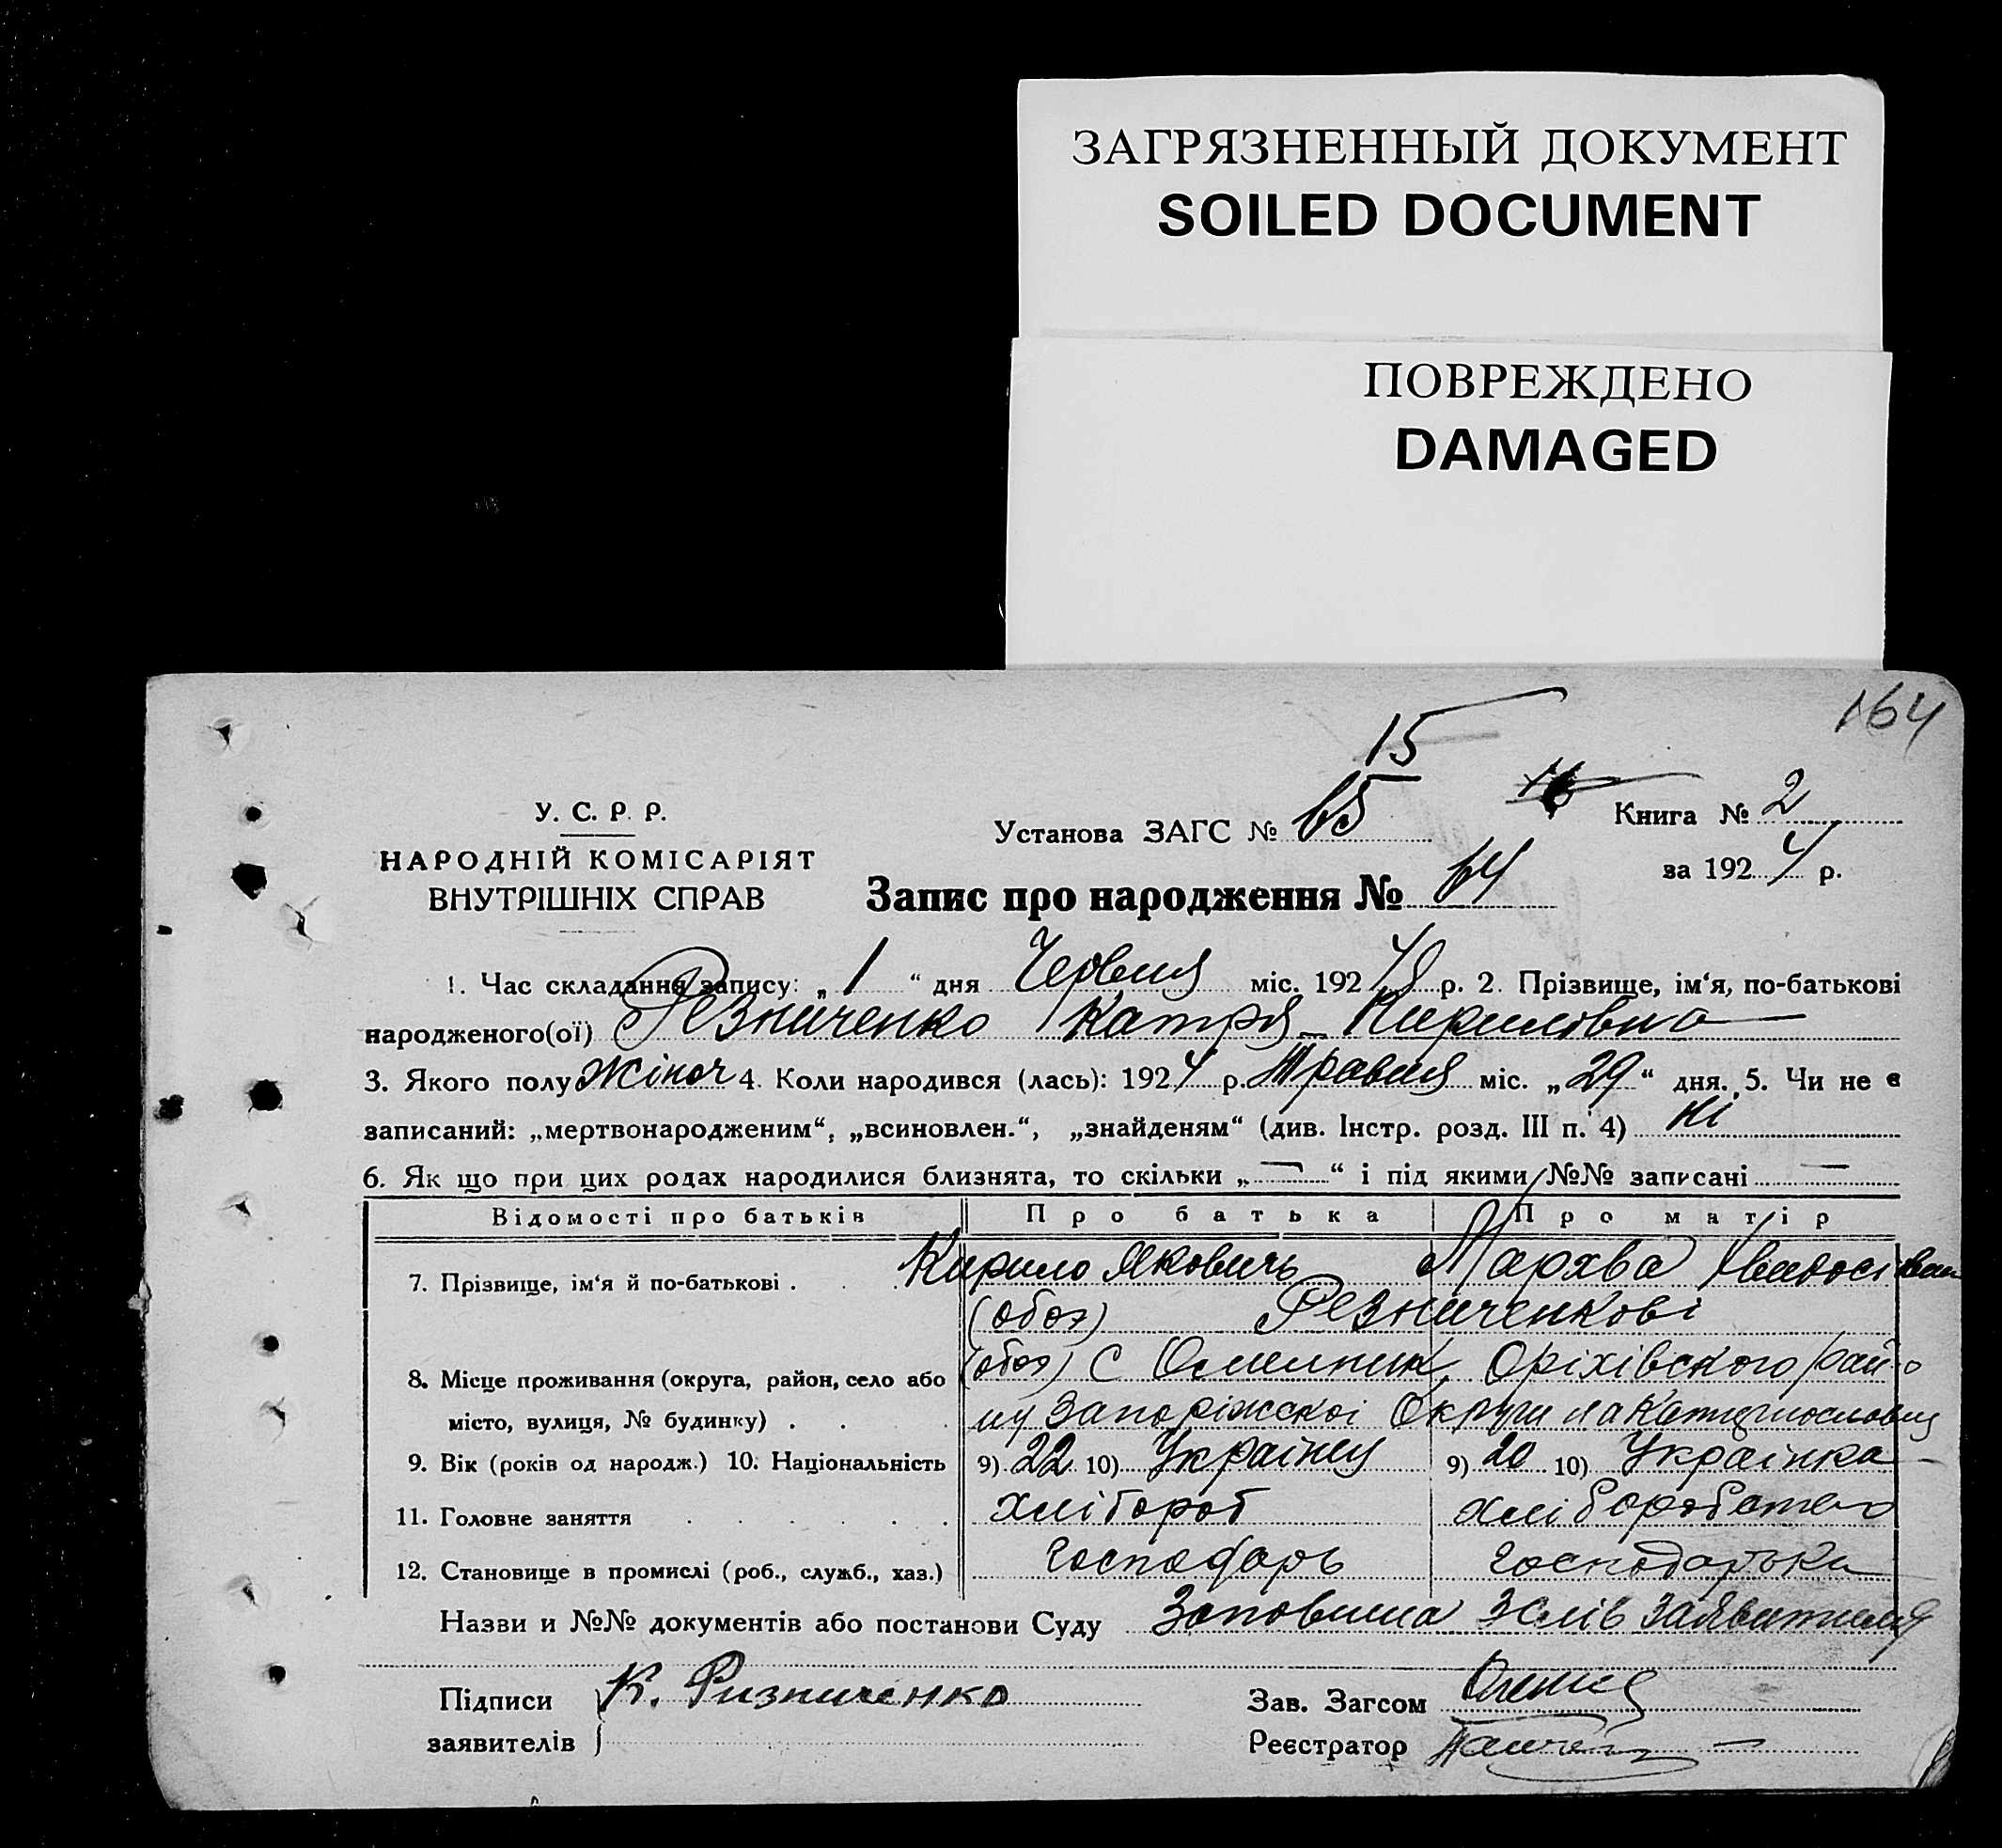 ЗАГРЯЗНЕННЫЙ ДОКУМЕНТ
SOILED DOCUMENT
ПОВРЕЖДЕНО
DAMAGED
164
15
У. С. Р. Р.
НАРОДНІЙ КОМІСАРІЯТ
ВНУТРІШНІХ СПРАВ
Установа ЗАГС № 65
Книга № 2
за 1924 р.
Запис про народження № 64
1. Час складання запису: „1“ дня Червня міс. 1924 р. 2. Прізвище, ім‘я, по-батькові
народженого(ої) Резниченко Катря Кирилівна
3. Якого полу жіноч 4. Коли народився (лась): 1924 р. Травня міс. „29“ дня. 5. Чи не є
записаний: „мертвонародженим“, „всиновлен.“, „знайденям“ (див. Інстр. розд. III п. 4) ні
6. Як що при цих родах народилися близнята, то скільки „—“ і під якими №№ записані —
Відомості про батьків Про батька Про матір
7. Прізвище, ім‘я й по-батькові . Кирило Яковичь Мархва
(обоє) Резниченкові
8. Місце проживання (округа, район, село або (обоє) с Омельник Оріхівского райо
місто, вулиця, № будинку) . ну Запоріжскоі Округи на
9. Вік (років од народж.) 10. Національність 9) 22 10) Украінец 9) 20 10) Украінка
11. Головне заняття хлібороб
12. Становище в промислі (роб., служб., хаз.) Господарь господарька
Назви и №№ документів або постанови Суду Заповнина Зслів Заявителя
Підписи К. Ризниченко Зав. Загсом
заявителів Реєстратор